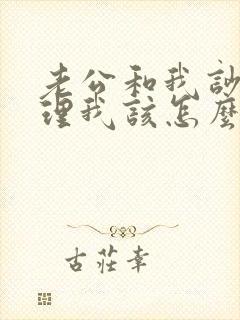 老公和我訬
理我該怎麼
古莊幸